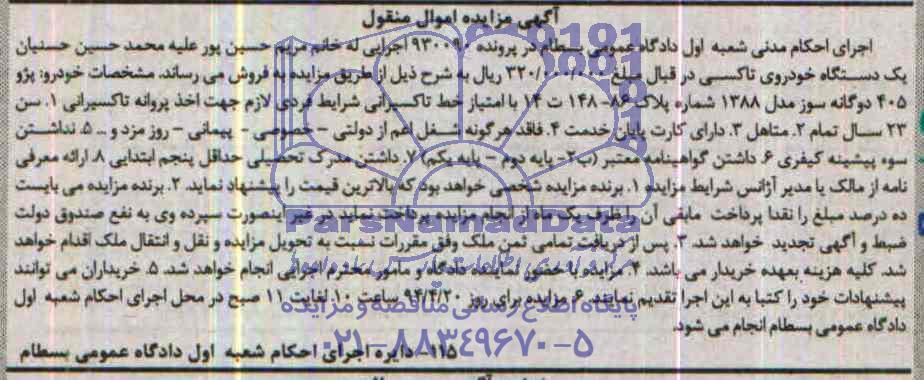 آگهی مزایده اموال منقول
اجرای احکام مدنی شعبه اول دادگاه عمومی بسطام در پرونده ۹۳۰۰۹۰ اجرایی له خانم مریم حسین پور علیه محمد حسین حسنیان
یک دستگاه خودروی تاکسی در قبال مبلغ ۳۳۰/۰۰۰/۰۰۰ ریال به شرح ذیل از طریق مزایده به فروش می رساند. مشخصات خودرو: پژو
۴۰۵ دوگانه سوز مدل ۱۳۸۸ شماره پلاک ۸۶-۱۴۸ ت ۱۴ با امتیاز خط تاکسیرانی شرایط فردی لازم جهت اخذ پروانه تاکسیرانی ۱. سن
۲۳ سال تمام ۲. متاهل ۳. دارای کارت پایان خدمت ۴. فاقد هرگونه شغل اهم از دولتی - خصوصی - پیمانی - روز مزد و ... ۵. نداشتن
سوء پیشینه کیفری ۶. داشتن گواهینامه معتبر (ب۲- پایه دوم - پایه یکم) ۷. داشتن مدرک تحصیلی حداقل پنجم ابتدایی ۸. ارائه معرفی
نامه از مالک یا مدیر آژانس شرایط مزایده ۱. برنده مزایده شخصی خواهد بود که بالاترین قیمت را پیشنهاد نماید. ۲. برنده مزایده می بایست
ده درصد مبلغ را نقدا پرداخت مابقی آن را ظرف یک ماه از انجام مزایده پرداخت نماید در غیر اینصورت سپرده وی به نفع صندوق دولت
ضبط و آگهی تجدید خواهد شد. ۳. پس از دریافت تمامی ثمن ملک وفق مقررات نسبت به تحویل مزایده و نقل و انتقال ملک اقدام خواهد
شد. کلیه هزینه بعهده خریدار می باشد. ۴. مزایده با حضور نماینده دادگاه و مامور محترم اجرایی انجام خواهد شد. ۵. خریداران می توانند
پیشنهادات خود را کتبا به این اجرا تقدیم نمایند. ۶. مزایده برای روز ۹۴/۴/۲۰ ساعت ۱۰ لغایت ۱۱ صبح در محل اجرای احکام شعبه اول
دادگاه عمومی بسطام انجام می شود.
۱۱۵- دایره اجرای احکام شعبه اول دادگاه عمومی بسطام
ParsNamadData
پایگاه اطلاع رسانی مناقصه و مزایده
۰۲۱-۸۸۳۴۹۶۷۰-۵